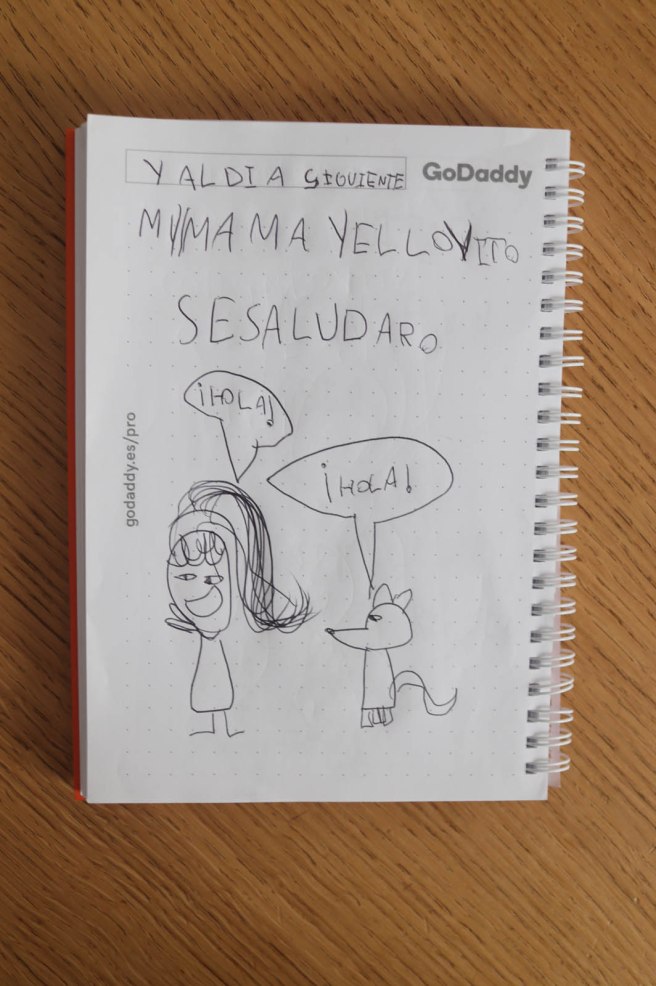 Y AL DI A SIGUIENTE
GoDaddy
MYMAMA YELLOVITO
SESALUDARO
¡HOLA!
¡HOLA!
godaddy.es/pro